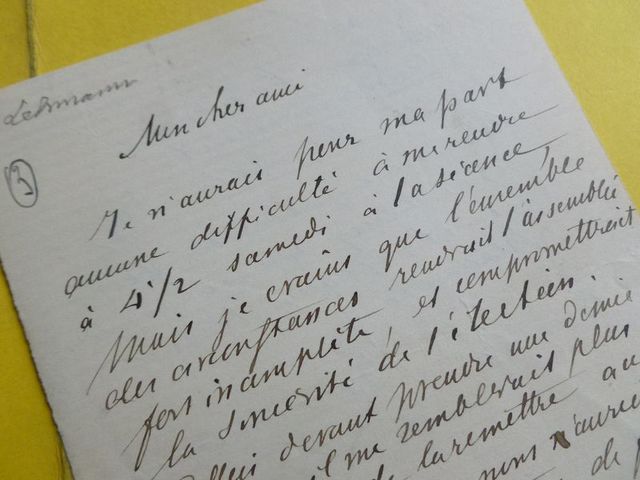 Lehmann
3
Mon cher ami
Je n'aurais pour ma part
aucune difficulté à me rendre
à 4 1/2 samedi à la séance,
Mais je crains que l'ensemble
des circonstances rendrait l'assemblée
fort incomplète, et compromettrait
la sincérité de l'élection.
devant prendre une demie
il me semblerait plus
de la remettre au
nous n'aurions
de